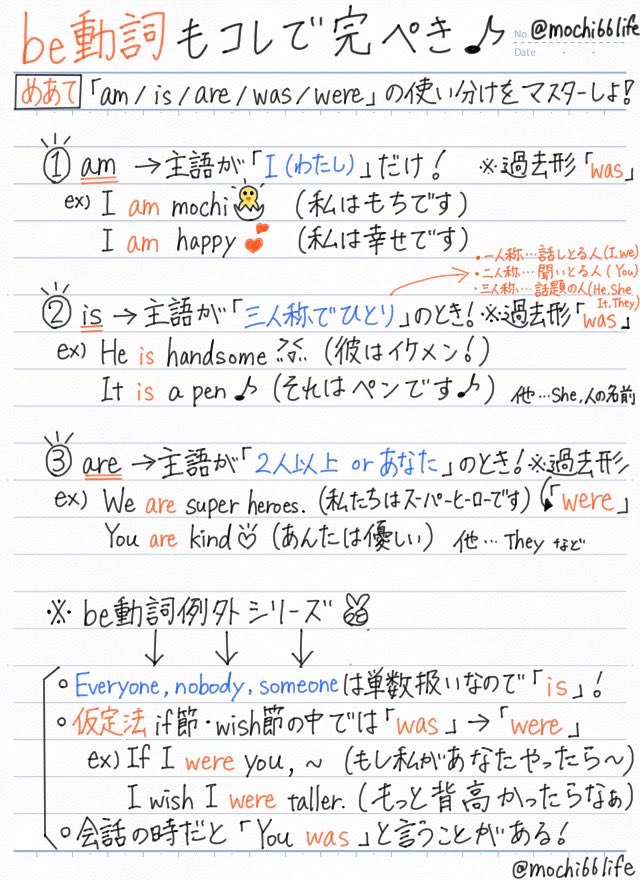 be動詞もコレで完ぺき♪
No. @mochi66life
Date
めあて 「am/is/are/was/were」の使い分けをマスターしよ!
① am →主語が「I(わたし)」だけ! ※過去形「was」
ex) I am mochi (私はもちです)
I am happy (私は幸せです)
・一人称…話しとる人(I,we)
・二人称…聞いとる人(You)
・三人称…話題の人(He,She
It,They)
② is →主語が「三人称でひとり」のとき!※過去形「was」
ex) He is handsome (彼はイケメン!)
It is a pen♪ (それはペンです♪) 他…She,人の名前
③ are →主語が「2人以上 or あなた」のとき!※過去形
ex) We are super heroes. (私たちはスーパーヒーローです) 「were」
You are kind (あんたは優しい) 他… They など
※ be動詞例外シリーズ
↓ ↓ ↓
○ Everyone, nobody, someoneは単数扱いなので「is」!
○ 仮定法 if節・wish節の中では「was」→「were」
ex) If I were you, ~ (もし私があなたやったら~)
I wish I were taller. (もっと背高かったらなぁ)
○ 会話の時だと「You was」と言うことがある!
@mochi66life